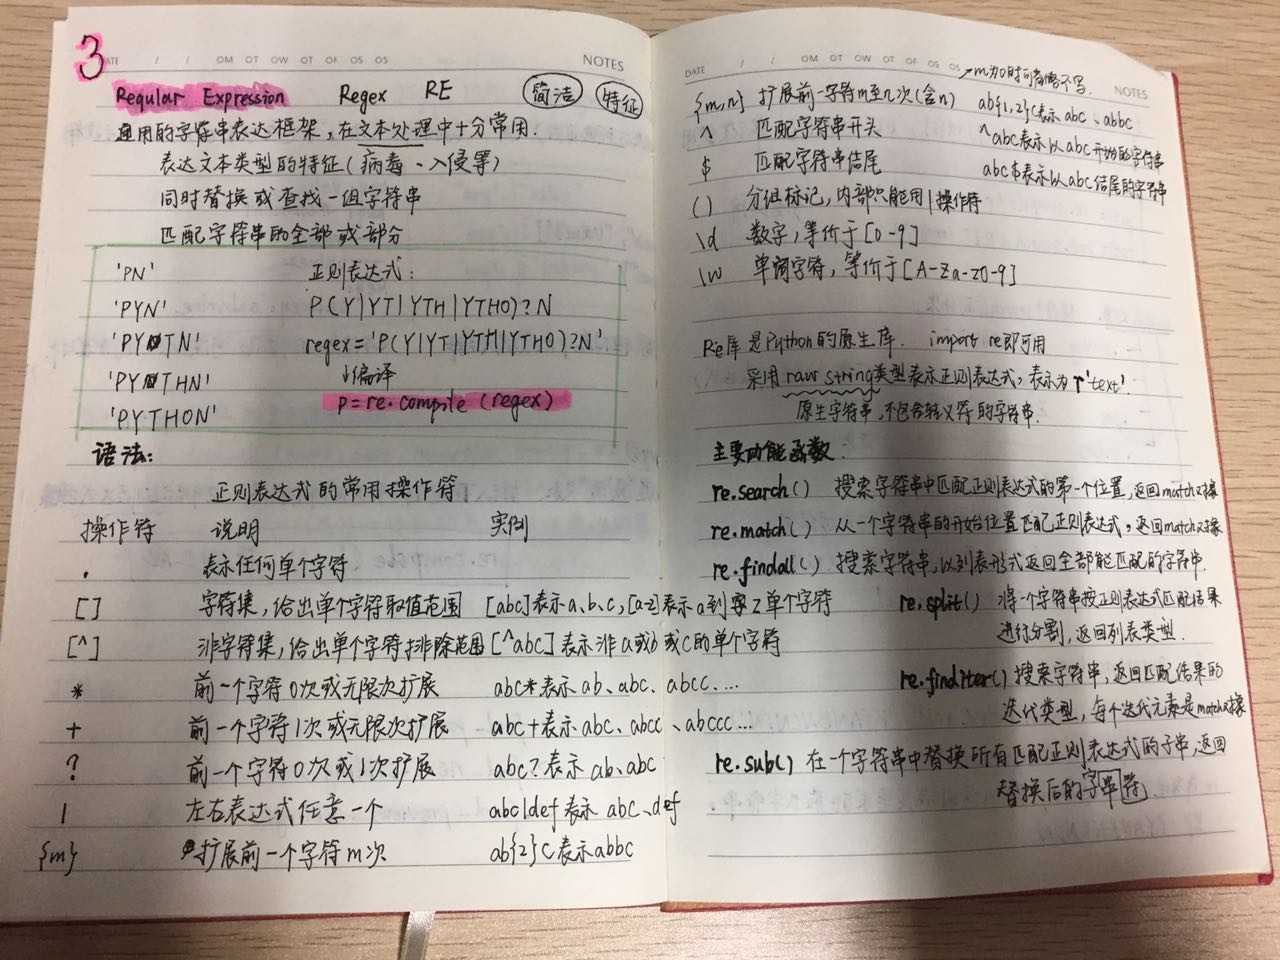 3
DATE / / OM OT OW OT OF OS OS NOTES
Regular Expression Regex RE 简洁 特征
通用的字符串表达框架,在文本处理中十分常用.
表达文本类型的特征(病毒、入侵等)
同时替换或查找一组字符串
匹配字符串的全部或部分
'PN' 正则表达式:
'PYN' P(Y|YT|YTH|YTHO)?N
'PYTN' regex='P(Y|YT|YTH|YTHO)?N'
'PYTHN' ↓编译
'PYTHON' p=re.compile(regex)
语法:
正则表达式的常用操作符
操作符 说明 实例
. 表示任何单个字符
[] 字符集,给出单个字符取值范围 [abc]表示a、b、c,[a-z]表示a到z单个字符
[^] 非字符集,给出单个字符排除范围 [^abc]表示非a或b或c的单个字符
* 前一个字符0次或无限次扩展 abc*表示ab、abc、abcc…
+ 前一个字符1次或无限次扩展 abc+表示abc、abcc、abccc…
? 前一个字符0次或1次扩展 abc?表示ab、abc
| 左右表达式任意一个 abc|def表示abc、def
{m} 扩展前一个字符m次 ab{2}c表示abbc
DATE / / OM OT OW OT OF OS OS NOTES
m为0时可省略不写.
{m,n} 扩展前一字符m至n次(含n) ab{1,2}c表示abc、abbc
^ 匹配字符串开头 ^abc表示以abc开始的字符串
$ 匹配字符串结尾 abc$表示以abc结尾的字符串
() 分组标记,内部只能用|操作符
\d 数字,等价于[0-9]
\w 单词字符,等价于[A-Za-z0-9]
Re库是Python的原生库. import re即可用
采用raw string类型表示正则表达式,表示为r'text'.
原生字符串,不包含转义符的字符串.
主要功能函数:
re.search() 搜索字符串中匹配正则表达式的第一个位置,返回match对象
re.match() 从一个字符串的开始位置匹配正则表达式,返回match对象
re.findall() 搜索字符串,以列表形式返回全部能匹配的字符串.
re.split() 将一个字符串按正则表达式匹配结果
进行分割,返回列表类型.
re.finditer() 搜索字符串,返回匹配结果的
迭代类型,每个迭代元素是match对象
re.sub() 在一个字符串中替换所有匹配正则表达式的子串,返回
替换后的字符串